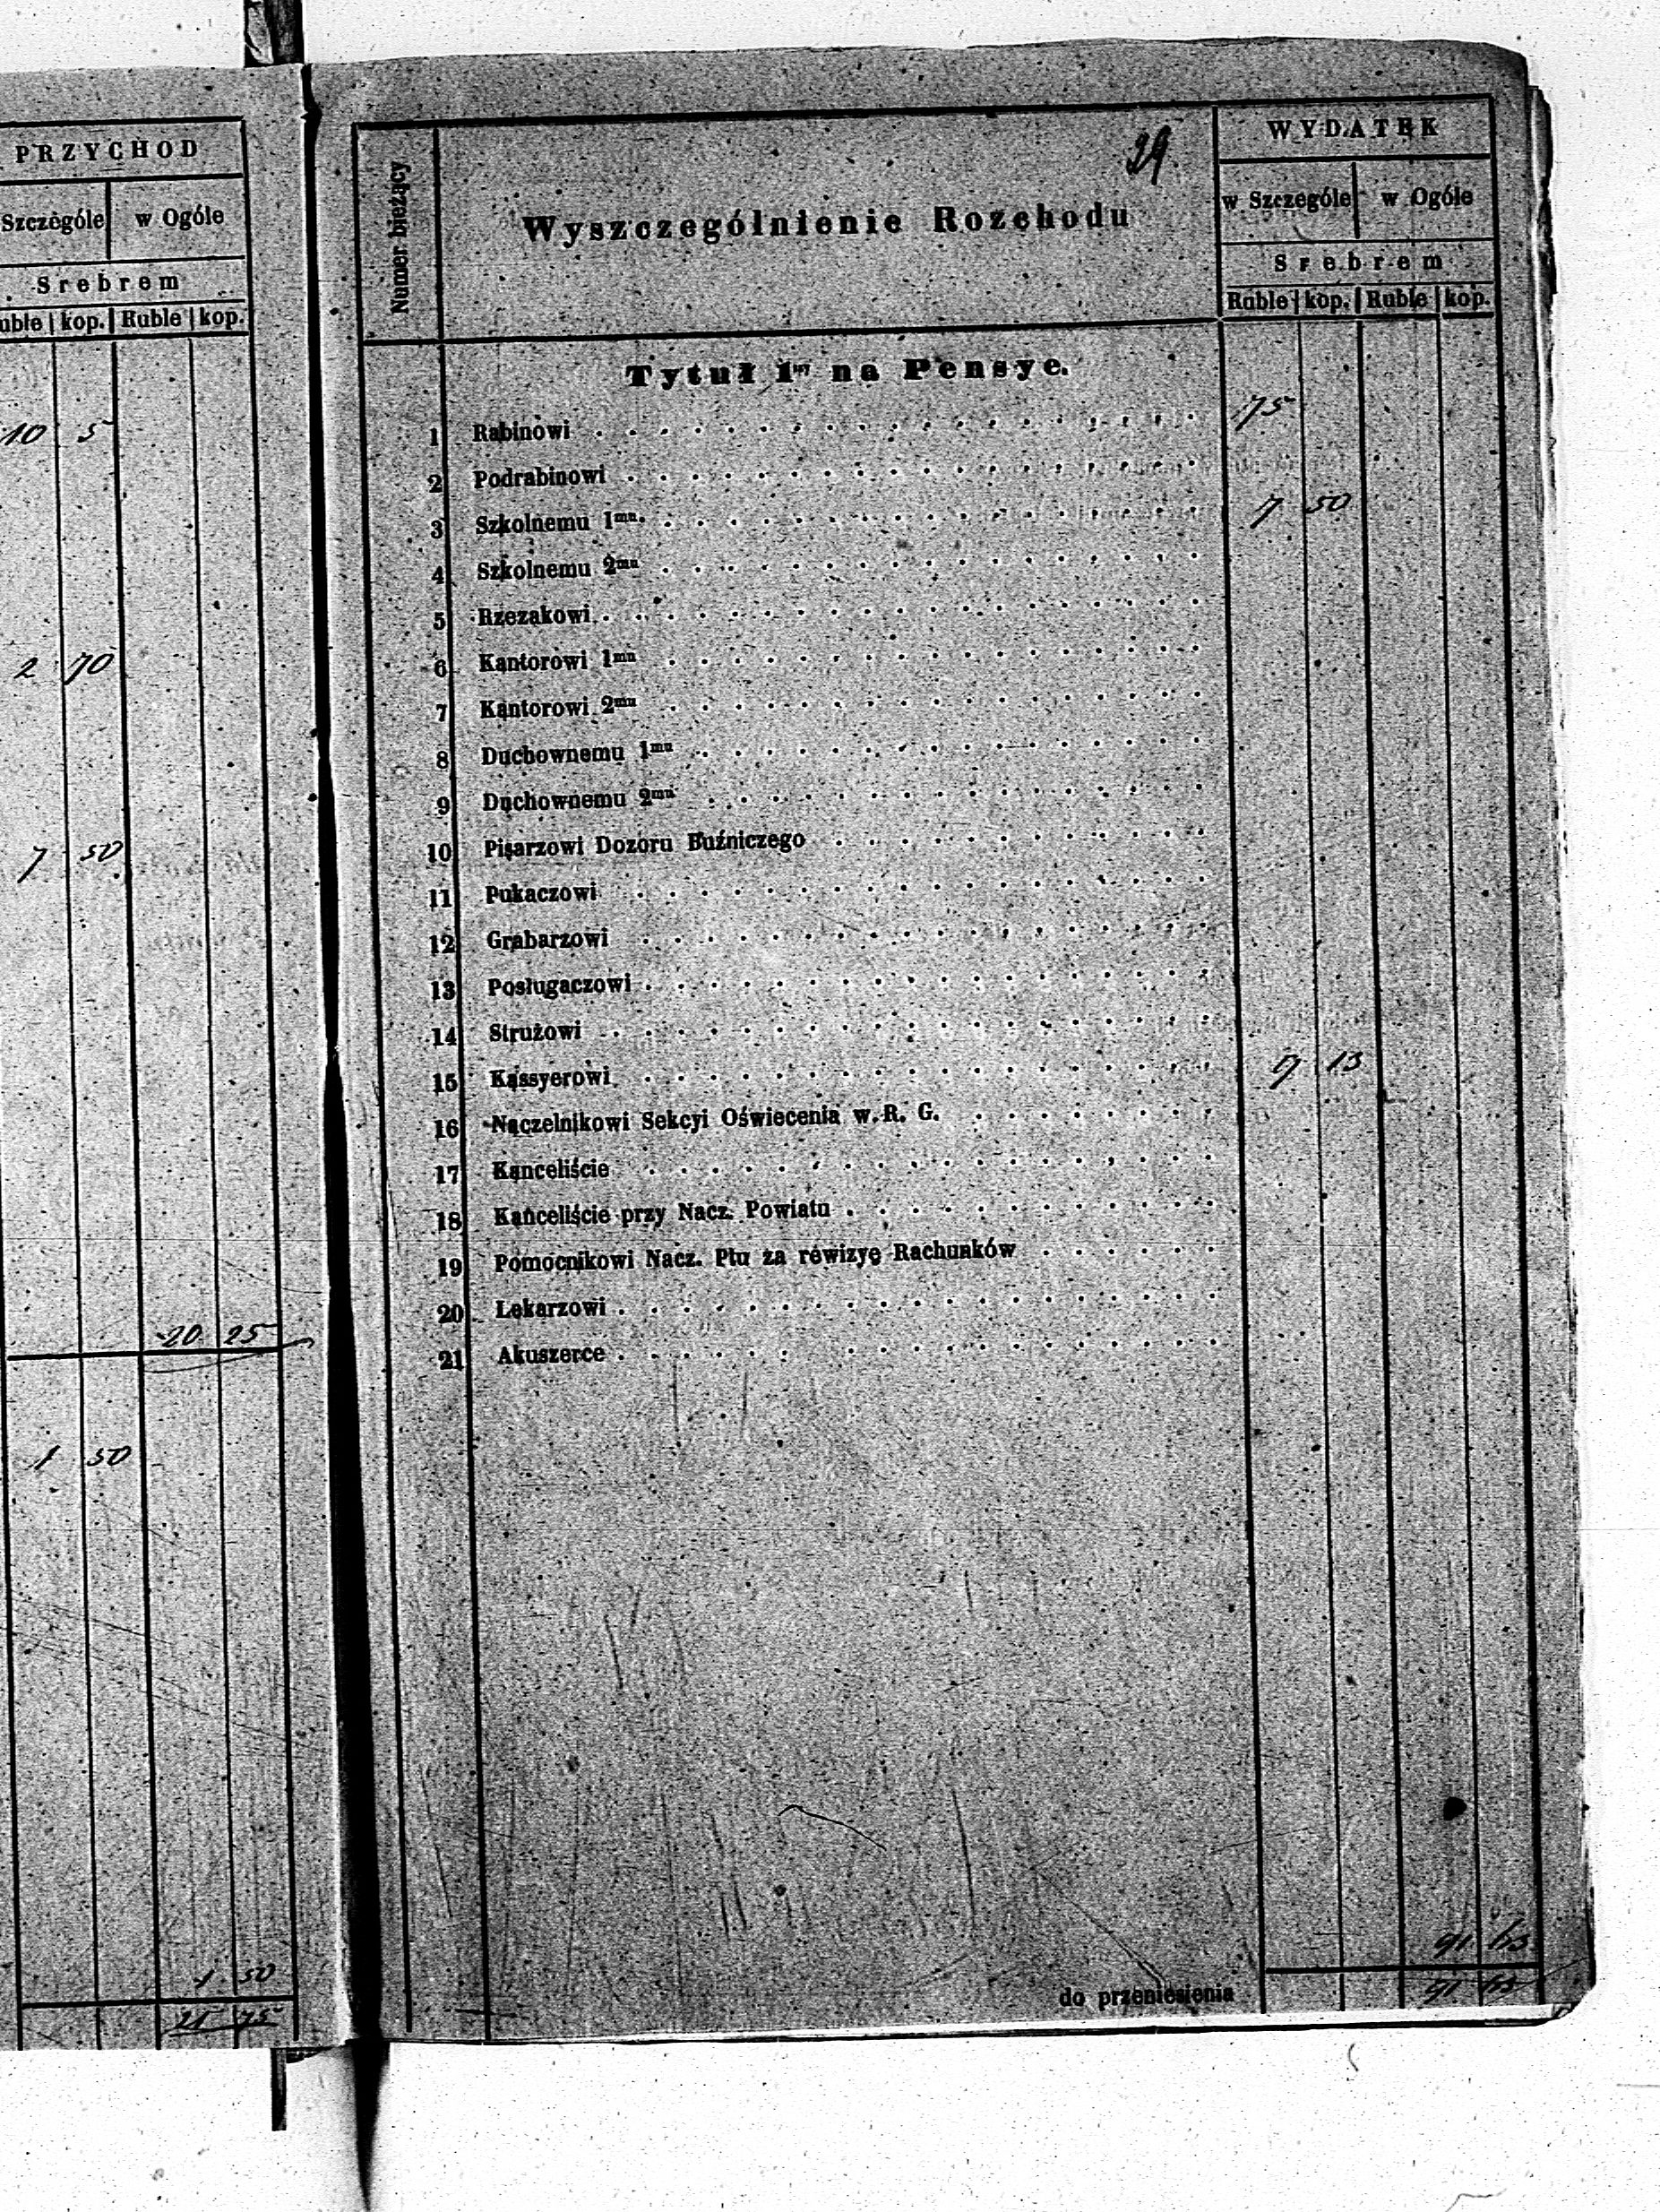 PRZYCHOD
Szczególe w Ogóle
Srebrem
uble kop. Ruble kop.
10 5
2 70
7 50
20 25
1 50
1 50
21 75
29
Numer bieżący
Wyszczególnienie Rozchodu
WYDATEK
w Szczególe w Ogóle
Srebrem
Ruble kop. Ruble kop.
Tytuł 1szy na Pensye.
1 Rabinowi 75
2 Podrabinowi
3 Szkolnemu 1mu. 7 50
4 Szkolnemu 2mu
5 Rzezakowi
6 Kantorowi 1mu
7 Kantorowi 2mu
8 Duchownemu 1mu
9 Duchownemu 2mu
10 Pisarzowi Dozoru Buźniczego
11 Pukaczowi
12 Grabarzowi
13 Posługaczowi
14 Strużowi
15 Kassyerowi 9 13
16 Naczelnikowi Sekcyi Oświecenia w. R. G.
17 Kanceliście
18 Kanceliście przy Nacz. Powiatu
19 Pomocnikowi Nacz. Ptu za rewizyę Rachunków
20 Lekarzowi
21 Akuszerce
91 63
do przeniesienia 91 63